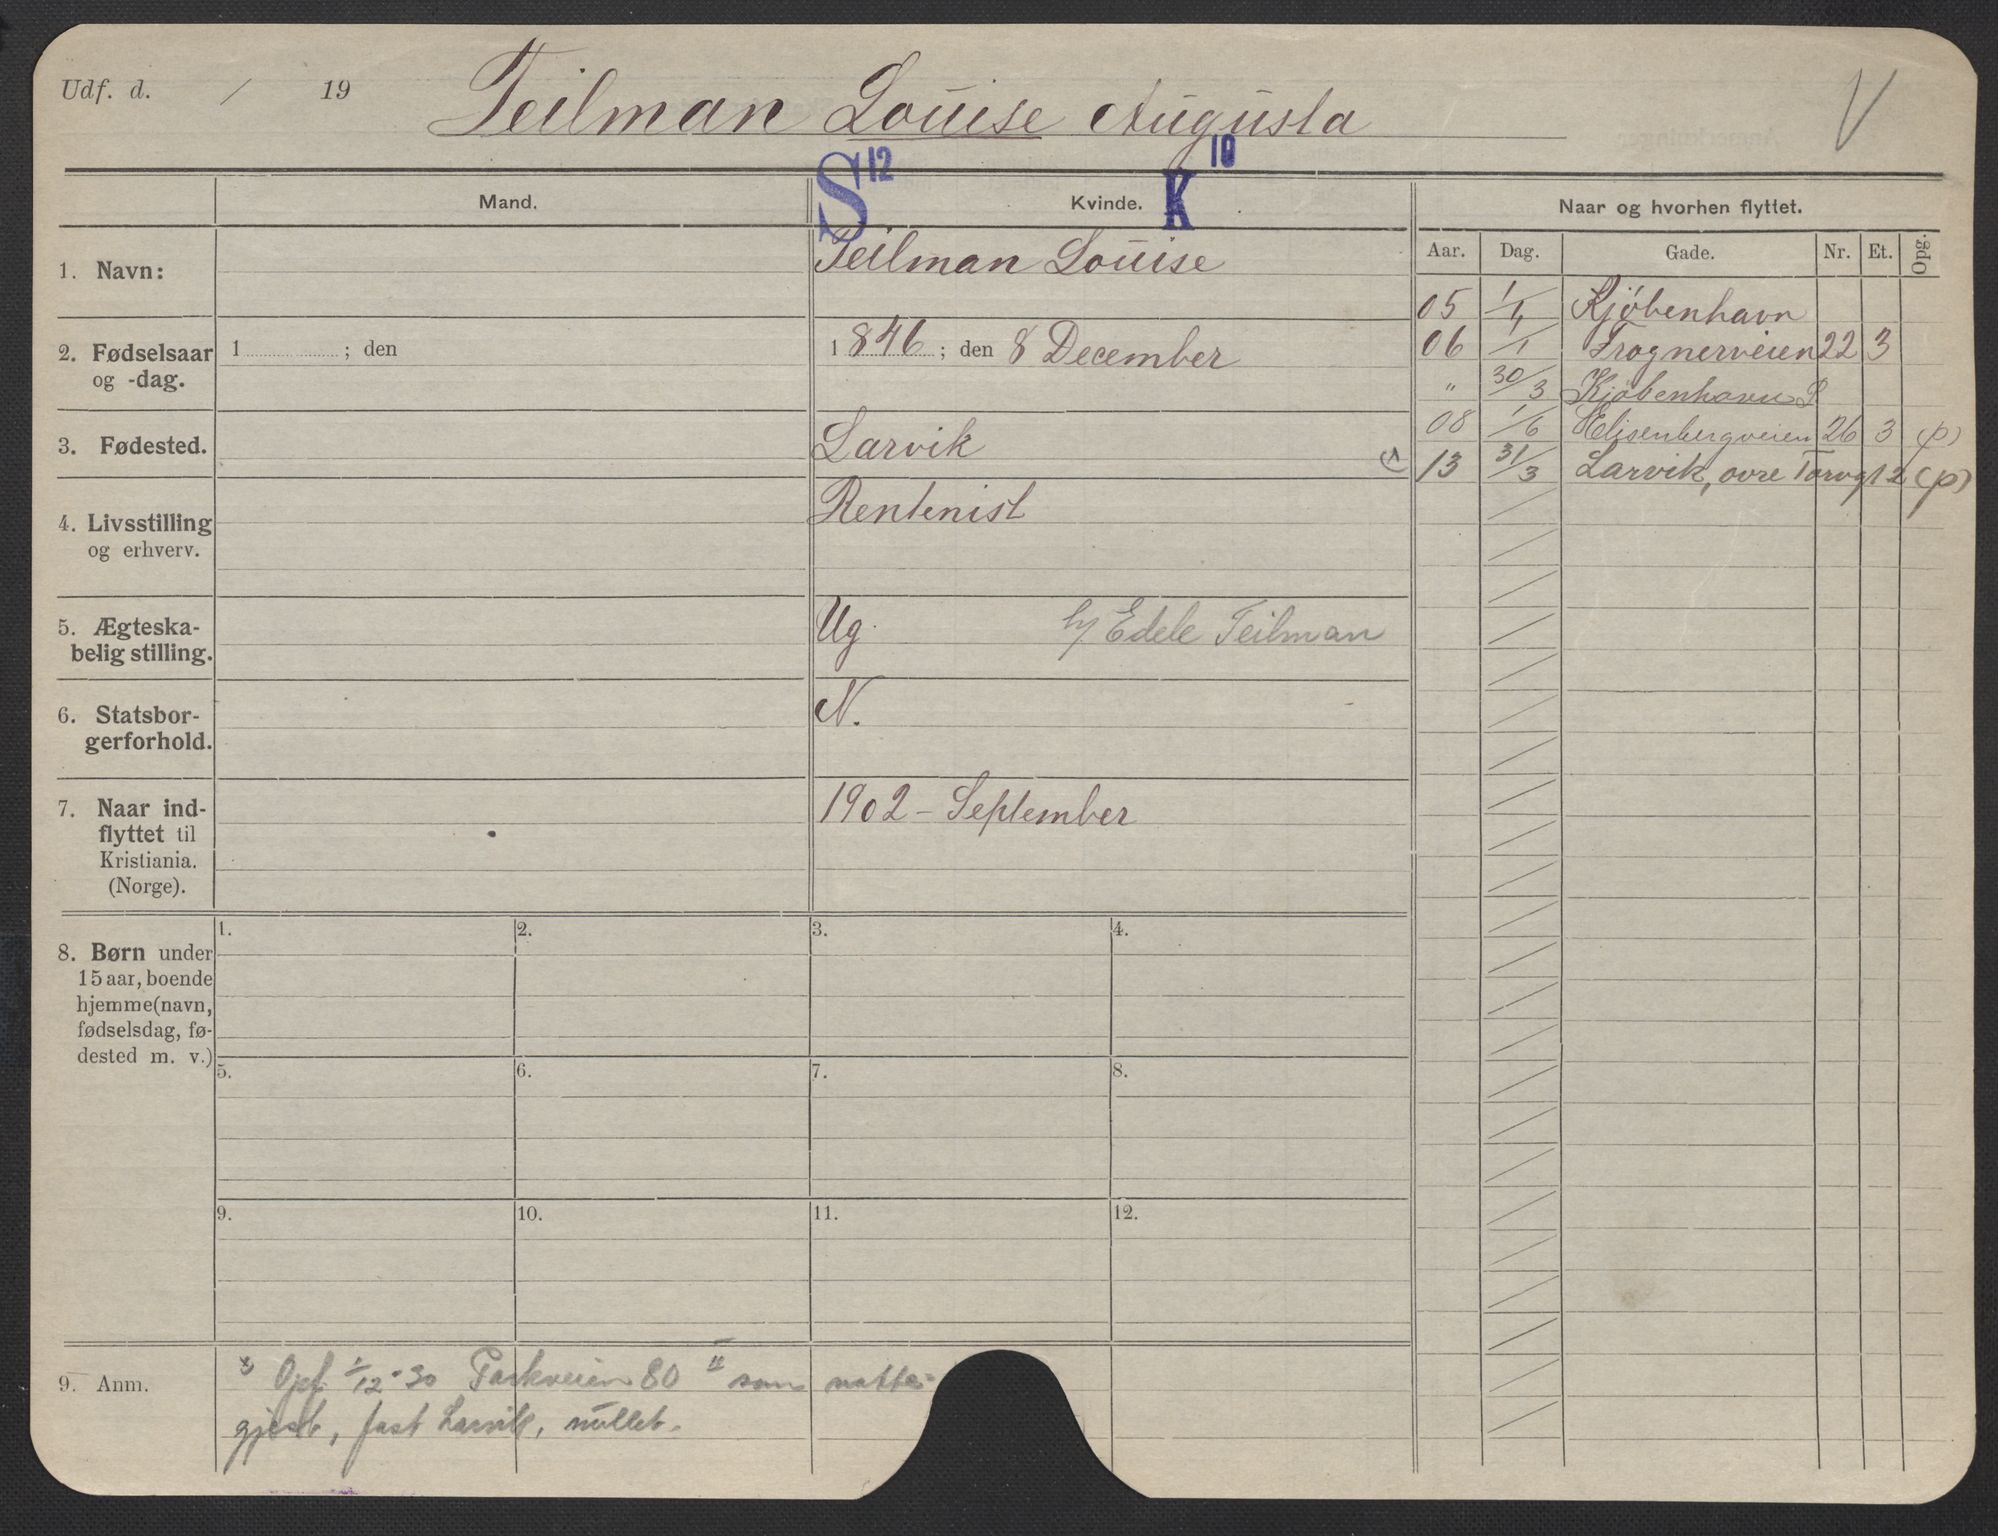 Udf. d. / 19
Teilman Louise Augusta
V
S 12
K 10
Mand.
Kvinde.
Naar og hvorhen flyttet.
Aar. Dag. Gade. Nr. Et. Opg.
1. Navn:
Teilman Louise
2. Fødselsaar
og -dag.
1 ; den
1846; den 8 December
3. Fødested.
Larvik
4. Livsstilling
og erhverv.
Rentenist
5. Ægteska-
belig stilling.
Ug. h/ Edele Teilman
6. Statsbor-
gerforhold.
N.
7. Naar ind-
flyttet til
Kristiania.
(Norge).
1902 - September
05 1/4 Kjøbenhavn
06 1/1 Frognerveien 22 3
" 30/3 Kjøbenhavn
08 1/6 Elisenbergveien 26 3 (p)
13 31/3 Larvik, øvre Torvgt 2 (p)
8. Børn under
15 aar, boende
hjemme (navn,
fødselsdag, fø-
dested m. v.)
1. 2. 3. 4.
5. 6. 7. 8.
9. 10. 11. 12.
9. Anm.
Opf. 1/12-30 Parkveien 80 II som natte-
gjest, fast Larvik, nullet.